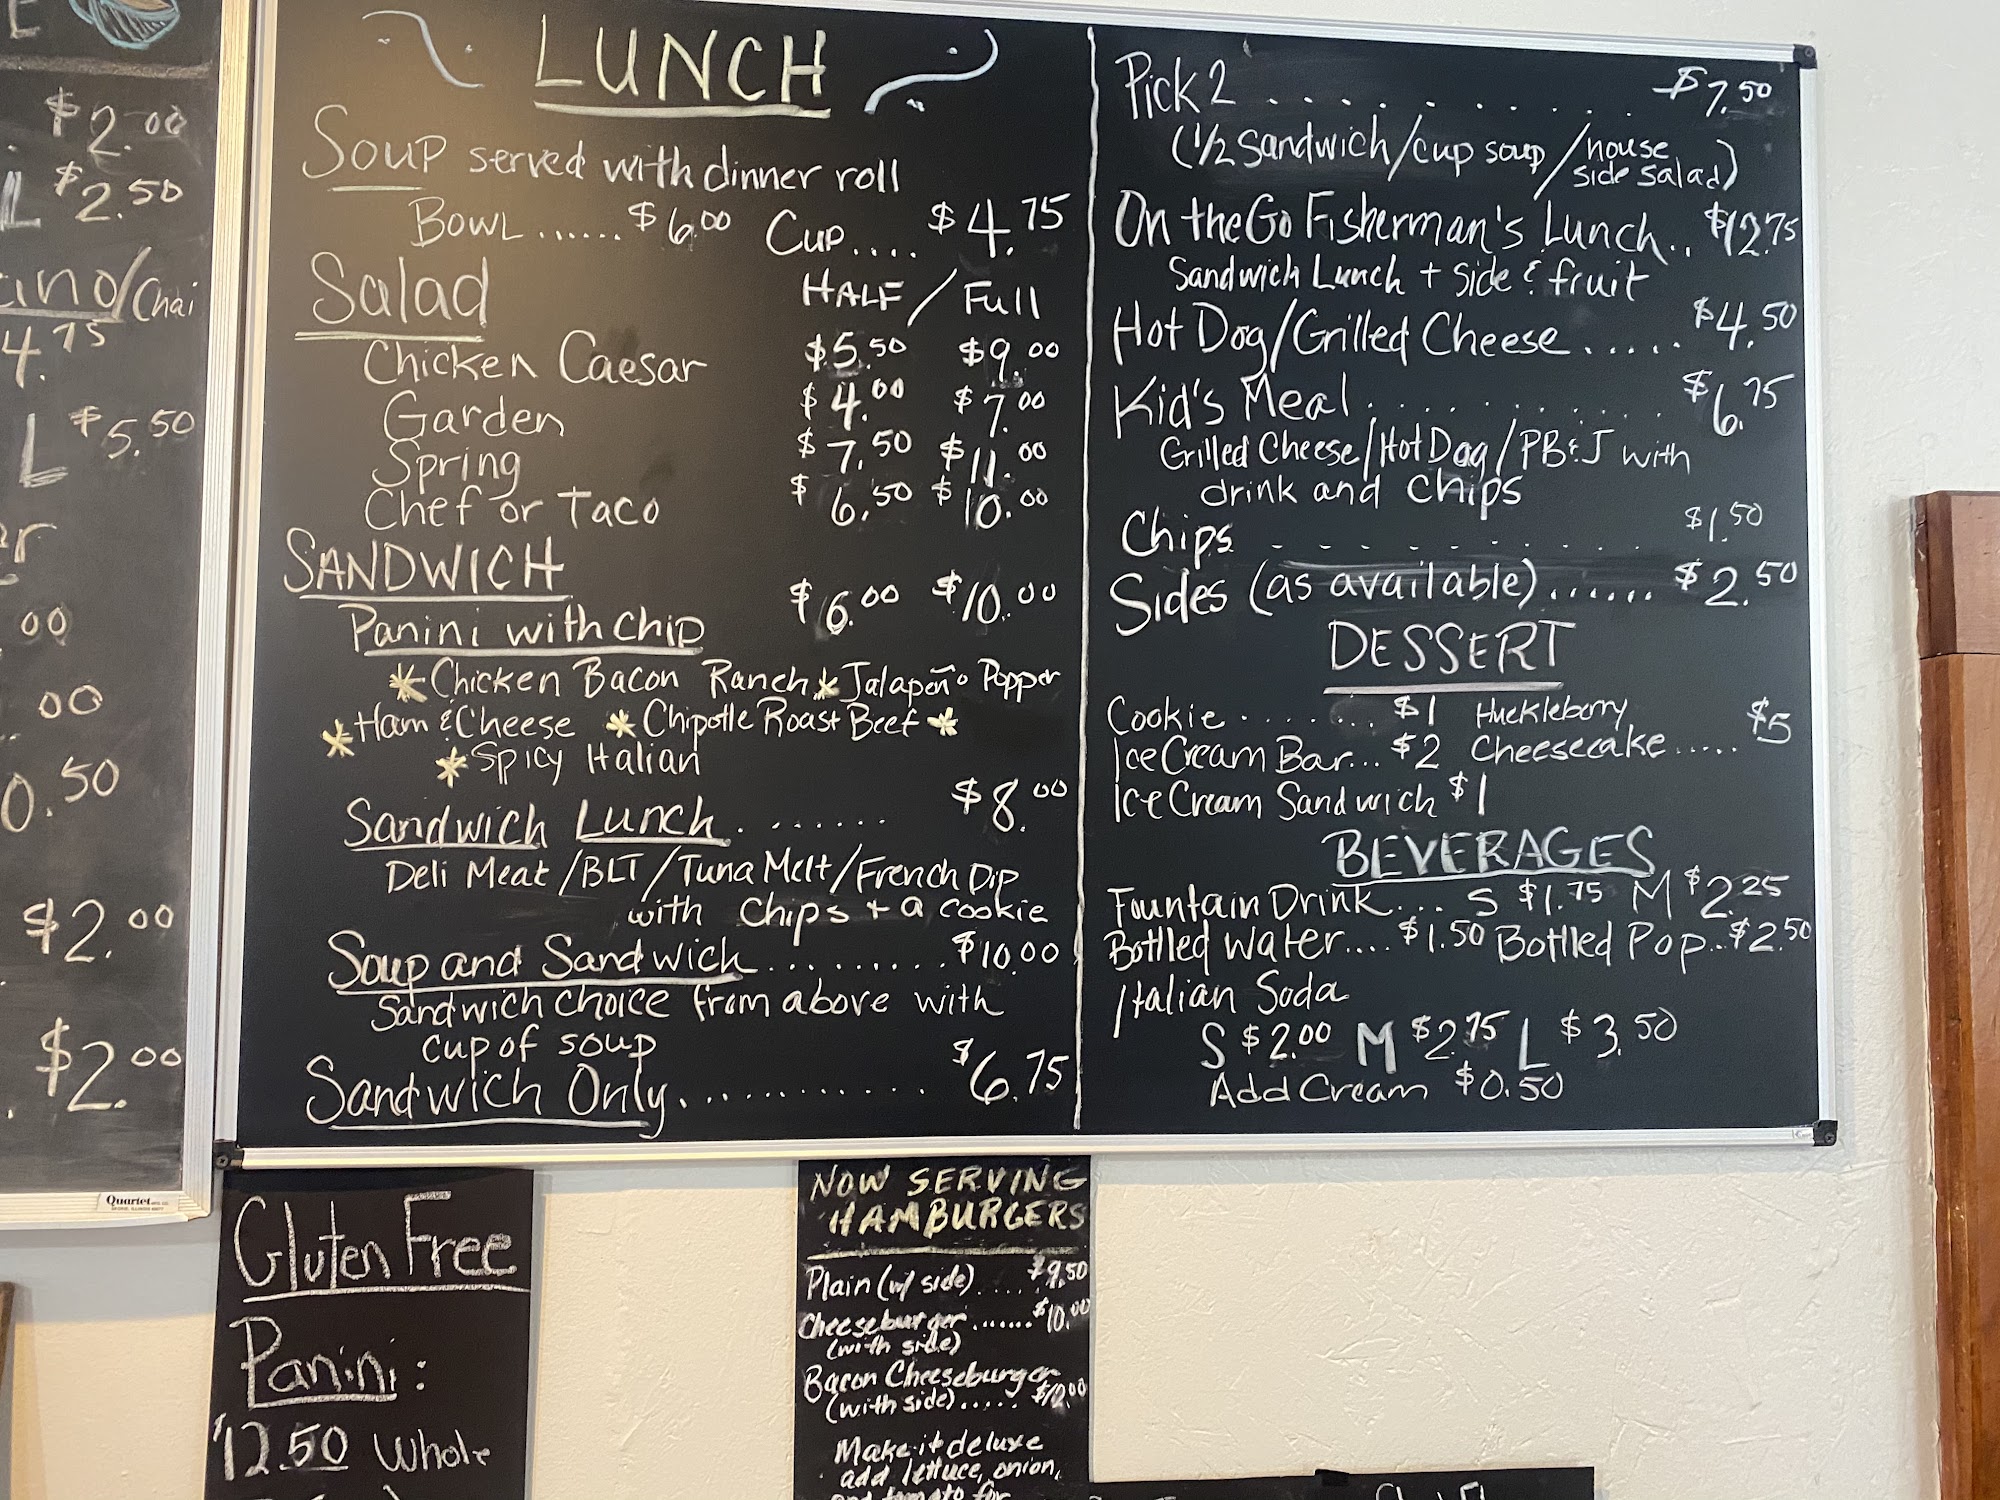 $2.00
L $2.50
ino/Chai
4.75
L $5.50
er
00
.00
0.50
$2.00
$2.00
Quartet
LUNCH
Soup served with dinner roll
Bowl ...... $6.00 Cup .... $4.75
Salad HALF / Full
Chicken Caesar $5.50 $9.00
Garden $4.00 $7.00
Spring $7.50 $11.00
Chef or Taco $6.50 $10.00
SANDWICH
Panini with chip $6.00 $10.00
*Chicken Bacon Ranch *Jalapeño Popper
*Ham & Cheese *Chipotle Roast Beef *
*Spicy Italian
Sandwich Lunch ....... $8.00
Deli Meat/BLT/Tuna Melt/French Dip
with chips + a cookie
Soup and Sandwich ......... $10.00
Sandwich choice from above with
cup of soup
Sandwich Only ........... $6.75
Pick 2 ........... $7.50
(1/2 Sandwich/cup soup/house
side salad)
On the Go Fisherman's Lunch .. $12.75
Sandwich Lunch + side & fruit
Hot Dog/Grilled Cheese ..... $4.50
Kid's Meal ............ $6.75
Grilled Cheese/Hot Dog/PB&J with
drink and chips
Chips .......... $1.50
Sides (as available) ...... $2.50
DESSERT
Cookie ....... $1 Huckleberry
Ice Cream Bar... $2 Cheesecake ..... $5
Ice Cream Sandwich $1
BEVERAGES
Fountain Drink... S $1.75 M $2.25
Bottled Water.... $1.50 Bottled Pop... $2.50
Italian Soda
S $2.00 M $2.75 L $3.50
Add Cream $0.50
Gluten Free
Panini:
$12.50 Whole
NOW SERVING
HAMBURGERS
Plain (w/ side) .... $9.50
Cheeseburger ....... $10.00
(with side)
Bacon Cheeseburger
(with side) ..... $12.00
Make it deluxe
add lettuce, onion,
and tomato for